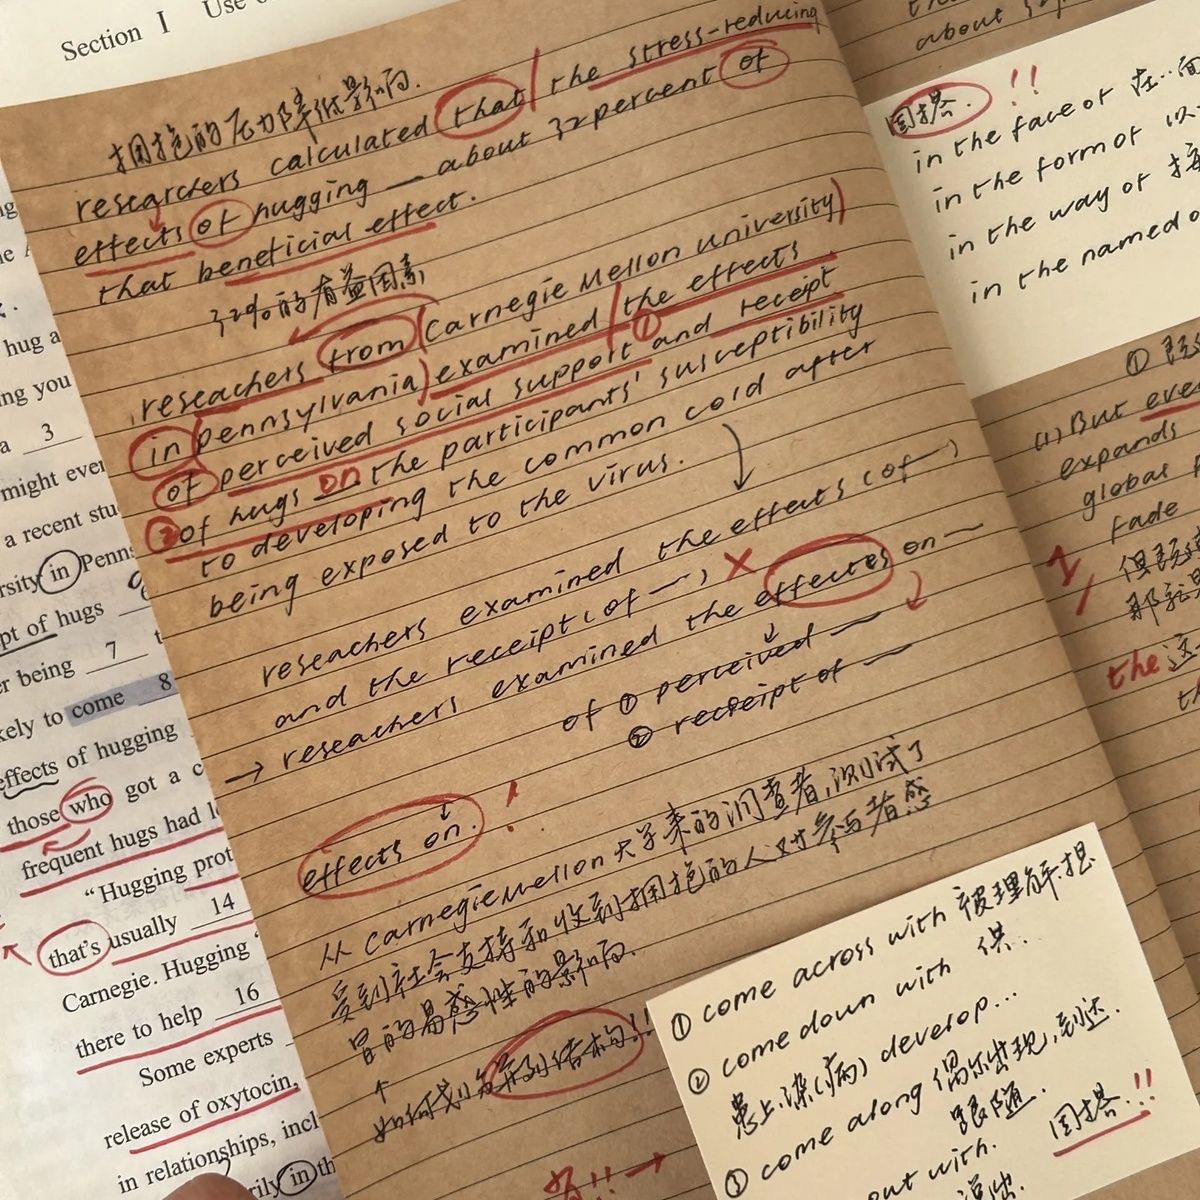 Section I Use o
拥抱的压力降低影响.
researchers calculated that the stress-reducing
effects of hugging — about 32percent of
that beneficial effect.
32%的有益因素
reseachers from (Carnegie Mellon university)
in (pennsylvania) examined the effects
of perceived social support ① and receipt
② of hugs on the participants' susceptibility
to developing the common cold after
being exposed to the virus.
reseachers examined the effects (of —)
and the receipt (of —), ×
→ reseachers examined the effectes on —
of ① perceived —
② receipt of —
effects on. !
从 Carnegie Mellon 大学来的调查者,测试了
受到社会支持和收到拥抱的人对参与者感
冒的易感性的影响.
↑
如何划分并列结构!!
→
hug a
ing you
a 3
might ever
a recent stu
rsity in Penns
pt of hugs
er being 7 t
kely to come 8
effects of hugging
those who got a c
frequent hugs had l
"Hugging prot
that's usually 14
Carnegie. Hugging
there to help 16
Some experts
release of oxytocin,
in relationships, incl
rily in th
about
固搭. !!
in the face of 在..面
in the form of 以
in the way of
in the named o
①
(1) But eve
expands
global
fade
但
那就是
the 这
① come across with 被理解.提
供.
② come down with
患上.染(病) develop...
③ come along 偶尔出现,到达.
跟随.
固搭.!!
out with.
说出.